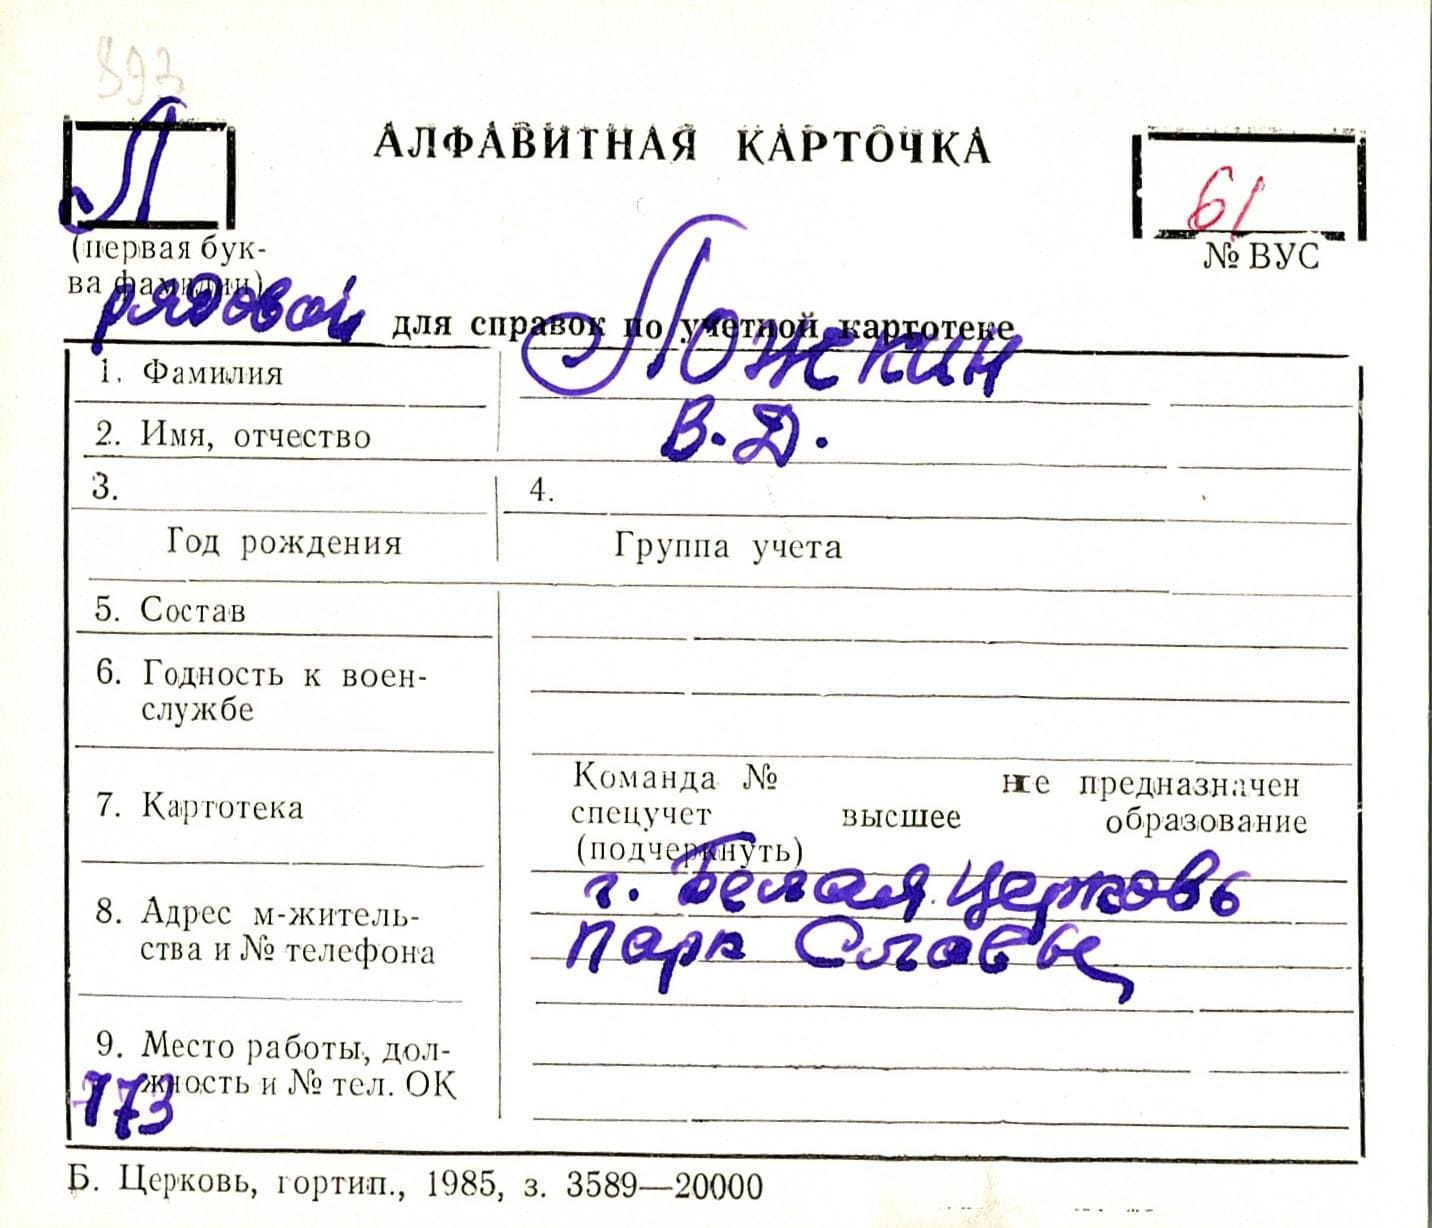 397
Л
АЛФАВИТНАЯ КАРТОЧКА
61
(первая бук-
ва фамилии)
№ ВУС
рядовой
для справок по учетной картотеке
1. Фамилия
Ложкин
2. Имя, отчество
В. Д.
3.
4.
Год рождения
Группа учета
5. Состав
6. Годность к воен-
службе
Команда № не предназначен
7. Картотека
спецучет высшее образование
(подчеркнуть)
8. Адрес м-житель-
ства и № телефона
г. Белая Церковь
парк Славы
9. Место работы, дол-
жность и № тел. ОК
173
Б. Церковь, гортип., 1985, з. 3589—20000